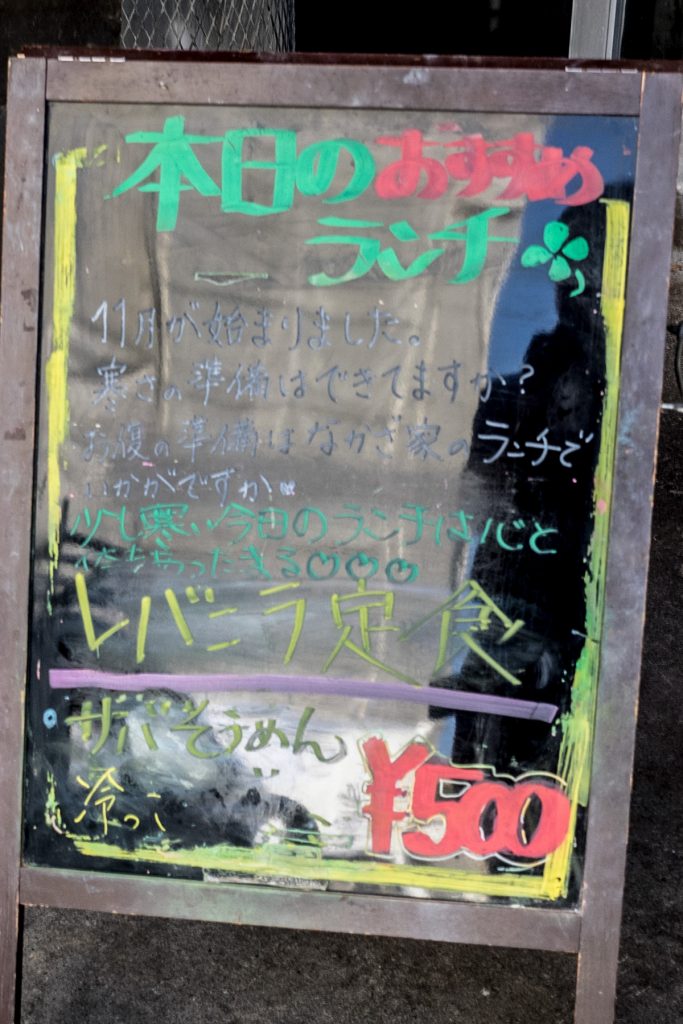 本日のおすすめ
ランチ
11月が始まりました。
寒さの準備はできてますか?
お腹の準備はなかざ家のランチで
いかがですか
少し寒い今日のランチは心と
レバニラ定食
サバそうめん
冷っこ
¥500